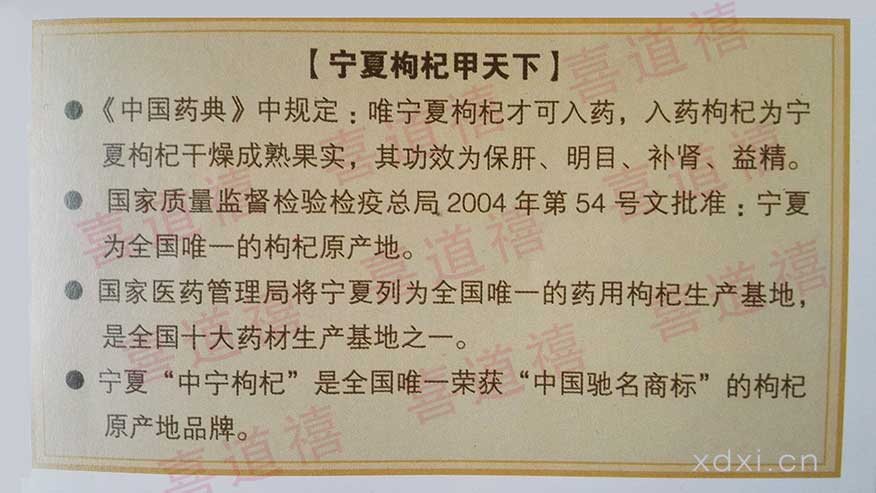 【宁夏枸杞甲天下】
● 《中国药典》中规定：唯宁夏枸杞才可入药，入药枸杞为宁
夏枸杞干燥成熟果实，其功效为保肝、明目、补肾、益精。
● 国家质量监督检验检疫总局2004年第54号文批准：宁夏
为全国唯一的枸杞原产地。
● 国家医药管理局将宁夏列为全国唯一的药用枸杞生产基地，
是全国十大药材生产基地之一。
● 宁夏“中宁枸杞”是全国唯一荣获“中国驰名商标”的枸杞
原产地品牌。
喜道禧
喜道禧
喜道禧
喜道禧
喜道禧
喜道禧
喜道禧
喜道禧
喜道禧
xdxi.cn